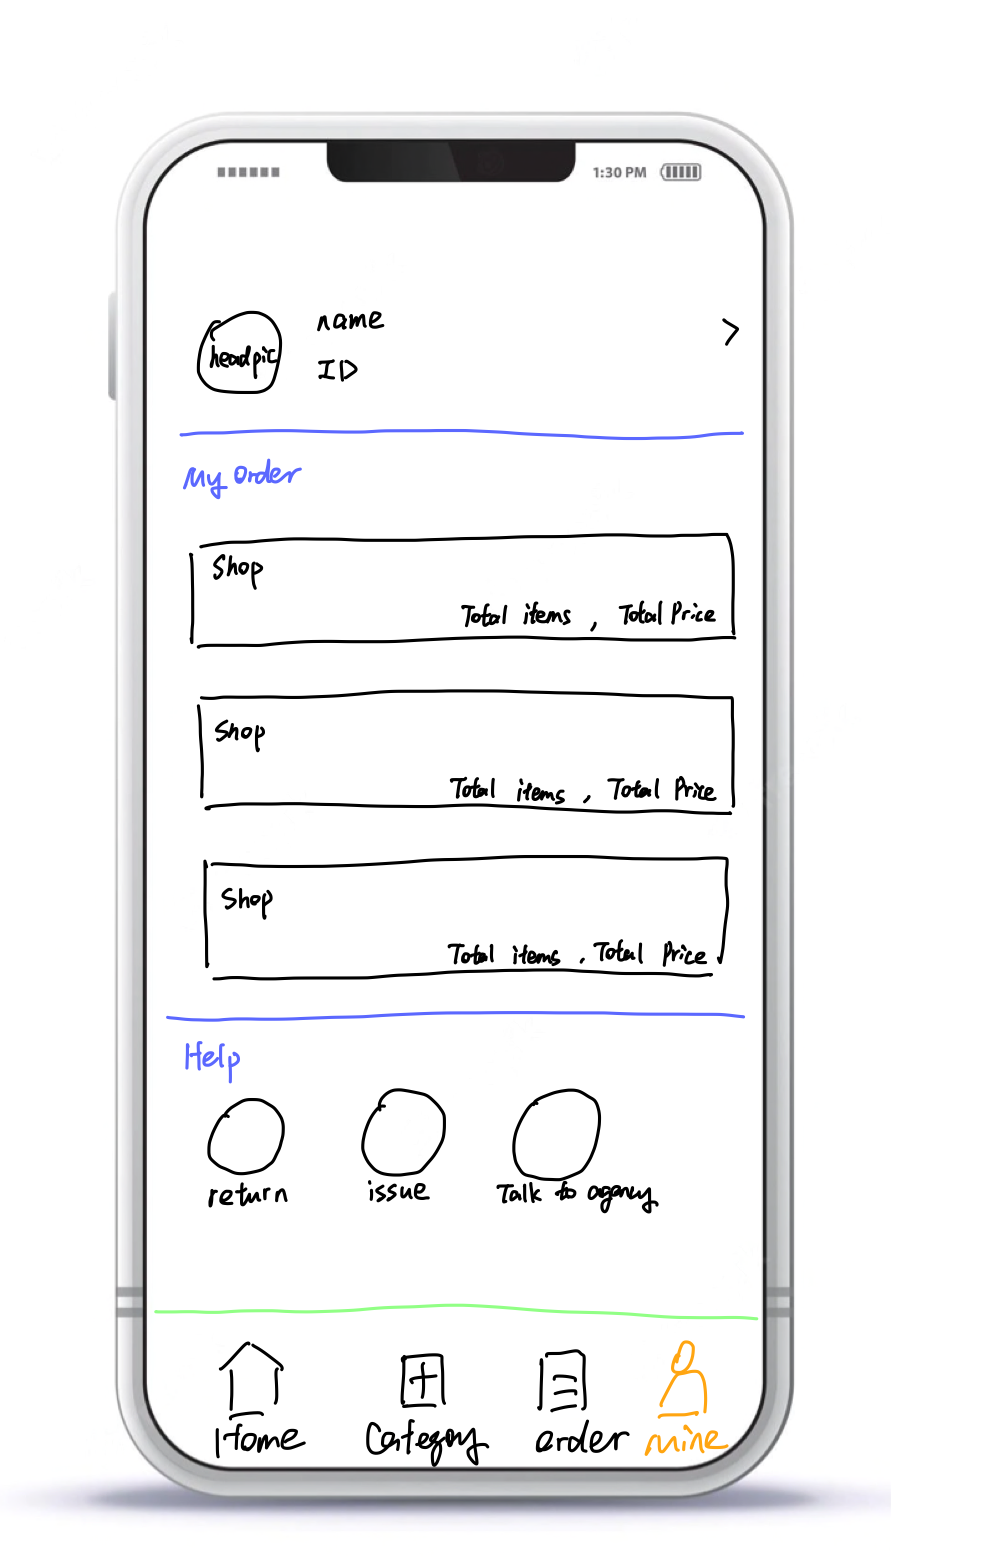 1:30 PM
headpic
name
ID
>
My Order
Shop
Total items , Total Price
Shop
Total items , Total Price
Shop
Total items , Total Price
Help
return
issue
Talk to agency
Home
Category
order
mine